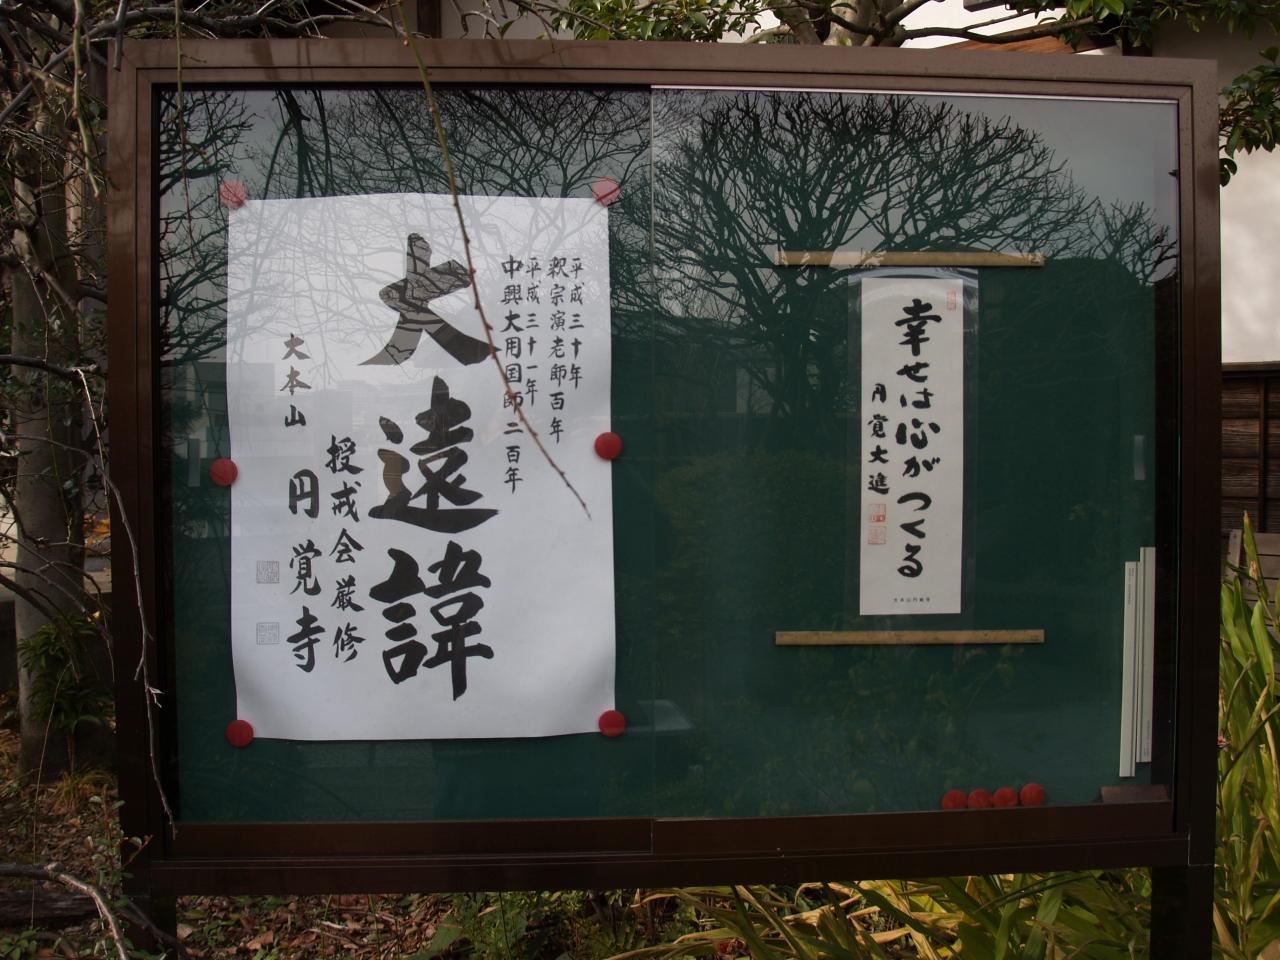 平成三十年
釈宗演老師百年
平成三十一年
中興大用国師二百年
大遠諱
授戒会厳修
大本山
円覚寺
幸せは心がつくる
円覚大進
大本山円覚寺